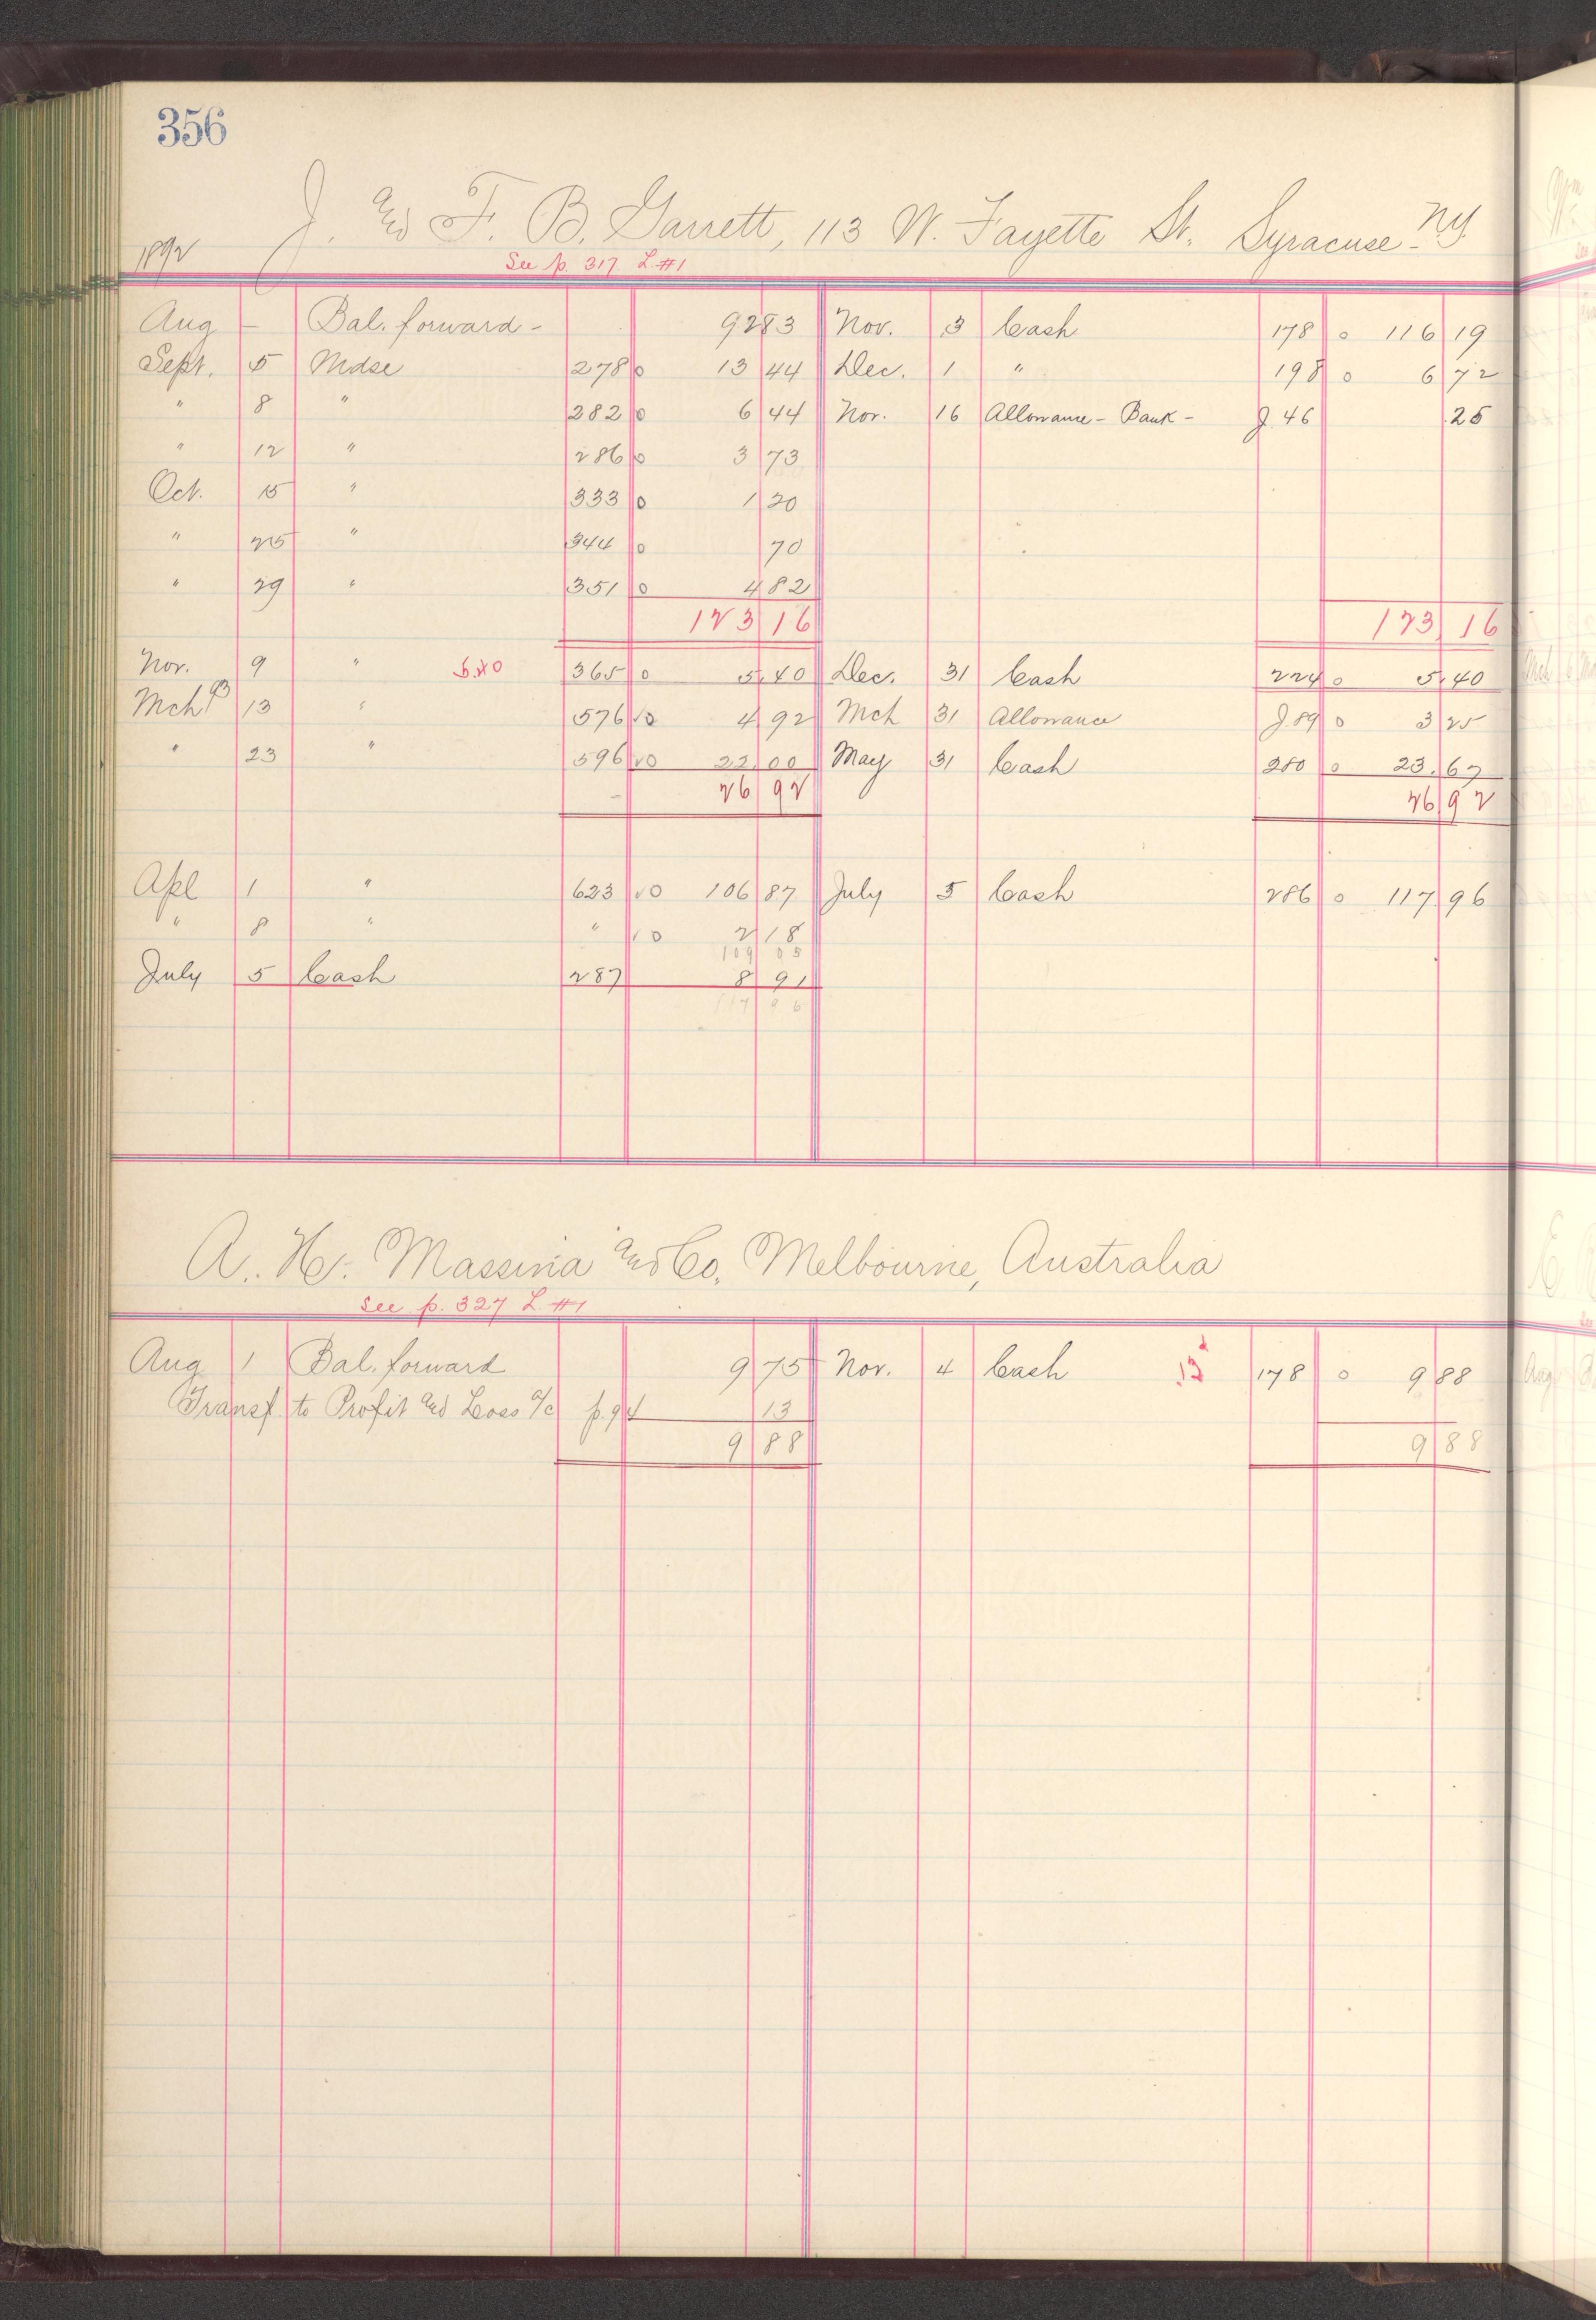 356
J. and F. B. Garrett, 113 W. Fayette St. Syracuse N.Y.
1892
See p. 317 L #1
Aug - Bal. forward - 92 83 Nov. 3 Cash 178 0 116 19
Sept. 5 Mdse 278 0 13 44 Dec. 1 " 198 0 6 72
" 8 " 282 0 6 44 Nov. 16 Allowance - Bank - J. 46 .25
" 12 " 286 0 3 73
Oct. 15 " 333 0 1 20
" 25 " 344 0 70
" 29 " 351 0 4 82
123 16 123 16
Nov. 9 " 5.40 365 0 5.40 Dec. 31 Cash 224 0 5.40
Mch 93 13 " 576 10 4 92 Mch 31 Allowance J. 89 0 3 25
" 23 " 596 10 22 00 May 31 Cash 280 0 23.67
26 92 26 92
Apl 1 " 623 10 106 87 July 5 Cash 286 0 117 96
" 8 " " 10 2 18
109 05
July 5 Cash 287 8 91
117 96
A. H. Massina and Co. Melbourne, Australia
See p. 327 L #1
Aug 1 Bal. forward 9 75 Nov. 4 Cash 178 0 9 88
Transf. to Profit and Loss a/c p. 94 13
9 88 9 88